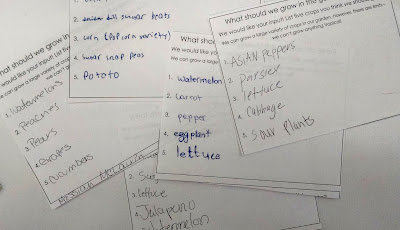 What should we grow in
We would like your input! List five
We can grow a large variety of
1. Watermelons
2. Peaches
3. Pears
4. Grapes
5. Cucumbers
2. summer beats
3. corn (Popcorn variety)
4. Sugar snap peas
5. Pototo
What shou
We would like you
We can grow a larg
1. watermelon
2. carrot
3. pepper
4. eggplant
5. lettuce
What should we grow in the
We would like your input! List five crops you think we should
We can grow a large variety of crops in our garden. However, there are limits –
we can't grow anything tropical.
1. ASIAN Peppers
2. parsley
3. lettuce
4. Cabbage
5. Sour Plants
2.
3. lettuce
4. Jalapeno
5. Watermelon